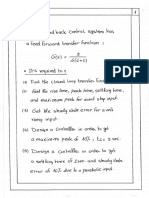 back control system has
a feed forward transfer function :
G(s) =
* It is required to :
(i) Find the closed loop transfer function
(ii) Find the rise time, peak time, settling time,
and maximum peak for a unit step input.
(iii) Get the steady state error for a unit
ramp input.
(iv) Design a Controller in order to get
a maximum peak of
(v) Design a Controller in order to get
a settling time of 2 sec and steady state
error of 10% due to a parabolic input.